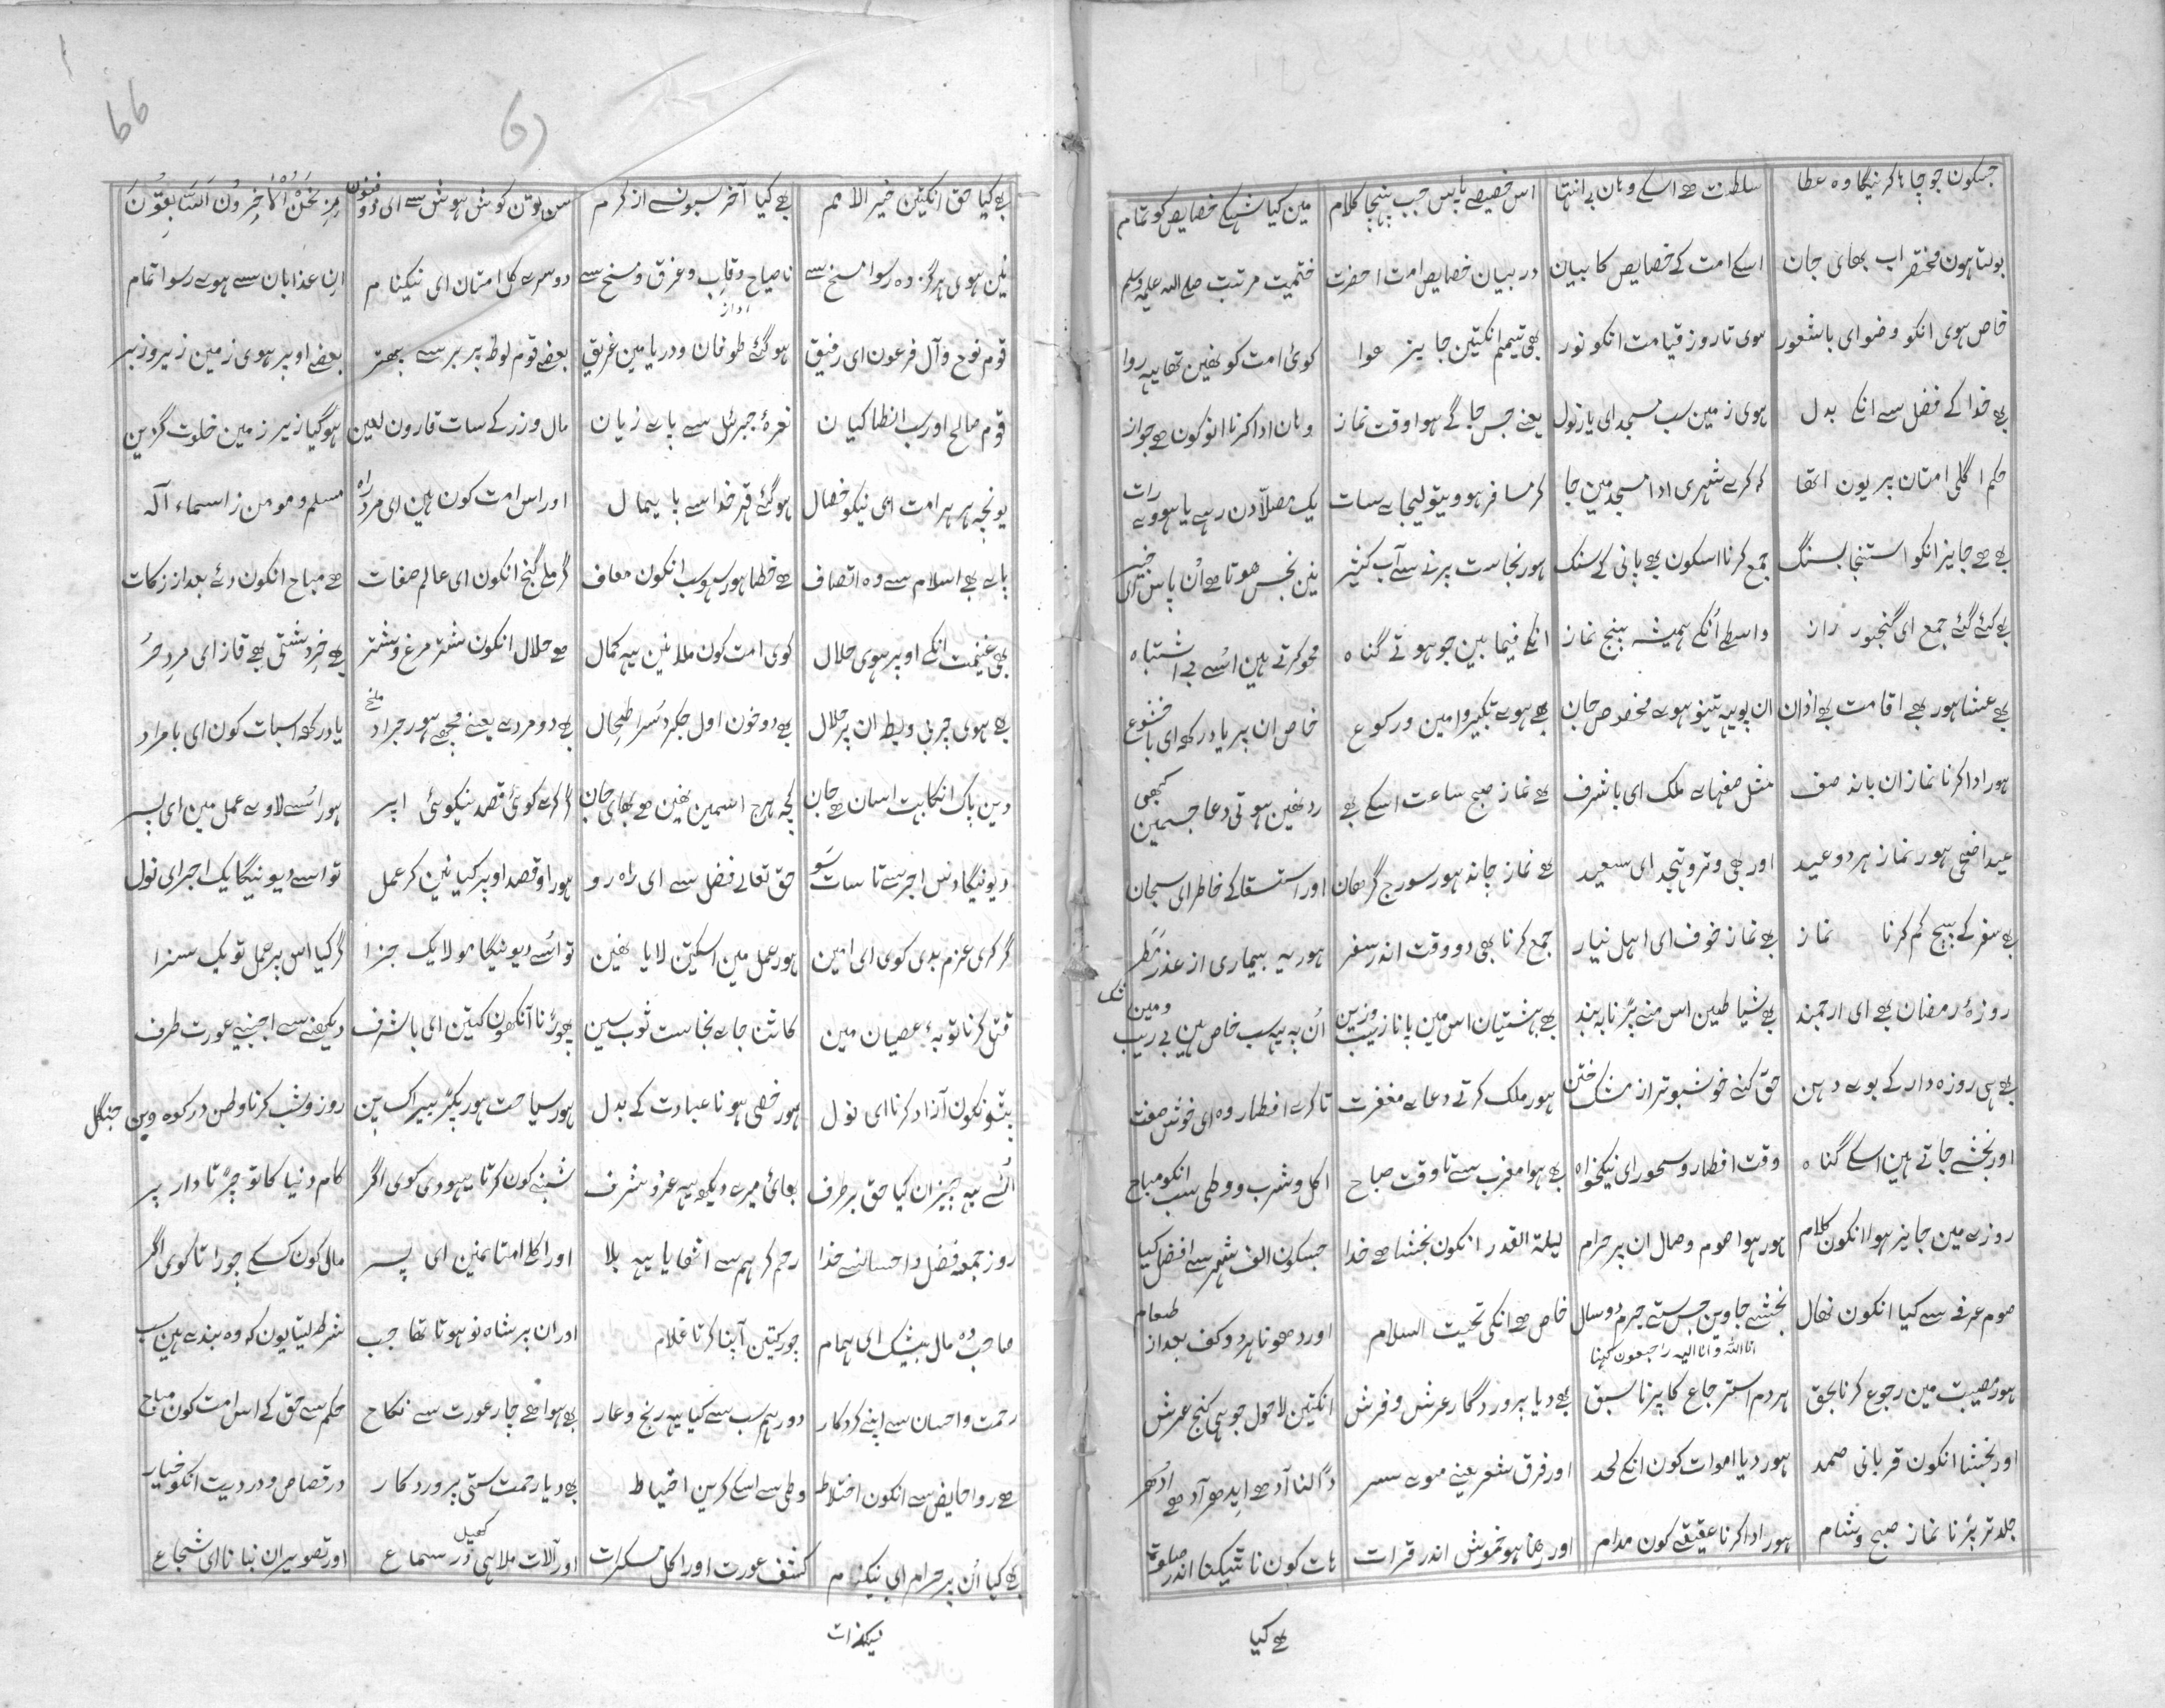 جسکون جو چاہا کرنیگا وہ عطا سلطنت ہے اسکے وہان بے انتہا اس خصیصے پاس جب پہنچا کلام مین کیا شہکے خصایص کو تمام
بولتا ہون مختصر اب بھای جان اسکے امت کے خصایص کا بیان در بیان خصایص امت احضرت ختمیت مرتبت صلی اللہ علیہ وسلم
خاص ہوی انکو وضو ای باشعور ہوی تا روز قیامت انکو نور بھی تیمم انکتین جایز ہوا کوئ امت کو نھین تھا یہہ روا
ہے خدا کے فضل سے انکے بدل ہوی زمین سب مسجد ای یار نول یعنے جس جاگے ہوا وقت نماز وہان ادا کرنا انو کون ہے جواز
حکم اگلی امتان پر یون اتھا کہ کرے شہری ادا مسجد مین جا کر مسافر ہووے تو لیجاے سات یک مصلّا دن رہے یا ہووے رات
ہے ہے جایز انکو استنجا بسنگ جمع کرنا اسکون بھے پانی کے سنگ ہور نجاست پرنے سے آب کثیر نین نجس ہوتا ہے اُن پاس ای خبیر
ہے کئے گئے جمع ای گنجور راز واسطے اُنکے ہمیشہ پنج نماز انکے فیما بین جو ہوتے گناہ محو کرتے ہین اسُے بے اشتباہ
بھے عشا ہور بھے اقامت بھے اذان ان پو یہہ تینو ہوے مخصوص جان بھے ہوے تکبیر و امین و رکوع خاص ان پر یاد رکھہ ای باخشوع
ہور ادا کرنا نماز ان باند صف مثل صفہاے ملک ای باشرف ہے نماز صبح ساعت اسکے بھے رد نھین ہوتی دعا جسمین کبھی
عید اضحی ہور نماز ہر دو عید اور بھی وتر و تہجد ای سعید ہے نماز چاند ہور سورج گرھان اور استسقا کے خاطر ای سبحان
ہے سفر کے بیچ کم کرنا نماز ہے نماز خوف ای اہل نیاز جمع کرنا بھی دو وقت اندر سفر ہور یہ بیماری از عذر مَطَر
روزۂ رمضان بھے ای ارجمند ہے شیاطین اس منے پڑنا بہ بند ہے بہشتیان اس مین پانا زیب و زین اُن پہ یہہ سب خاص ہین بے ریب و مین
ہے ہی روزہ دار کے بوے دہن حق کنے خوشبوتر از مشک ختن ہور ملک کرتے دعاے مغفرت تا کرے افطار وہ ای خوش صفت
اور بخشے جاتے ہین اسکے گناہ وقت افطار و سحور ای نیکخواہ ہے ہوا مغرب سے تا وقت صباح اکل و شرب و وطی سب انکو مباح
روزے مین جایز ہوا انکون کلام ہور ہوا صوم وصال ان پر حرام لیلۃ القدر انکون بخشا ہے خدا جسکون الف شہر سے افضل کیا
صوم عرفے سے کیا انکون نھال بخشے جاوین جس ستے جرم دو سال خاص ہے انکی تحیت السلام اور دھونا ہر دو کف بعد از طعام
ہور مصیبت مین رجوع کرنا بحق ہر دم استرجاع کا پڑنا سبق ہے دیا پروردگار عرش و فرش انکتین لاحول جو ہی کنج عرش
انا للہ و انا الیہ راجعون کہنا
اور بخشا انکون قربانی صمد ہور دیا اموات کون انکے لحد اور فرق شعر یعنے موے سر ڈالنا آدھے ایدھر آدھے ادھر
جلدتر پڑنا نماز صبح و شام ہور ادا کرنا عقیقے کون مدام اور رھنا ہو خموش اندر قرات ہات کون نا ٹیکنا اندر صلوۃ
ہے کیا
٦٦
ہے کیا حق انکتین خیر الامم ہے کیا آخر سبون سے از کرم سن تون گوش ہوش سے ای ذو فنون رمز نَحْنُ الْاٰخِرُونَ السَّابِقُوْنَ
نین ہوی ہرگز وہ رسوا مسخ سے نا صیاح و قاب و غرق و مسخ سے دوسرے کل امتان ای نیکنام ان عذابان سے ہوے رسوا تمام
قوم نوح و آل فرعون ای رفیق ہو گئے طوفان و دریا مین غریق بعضے قوم لوط پر برسے پھتر بعضے اوپر ہوی زمین زیر و زبر
قوم صالح اور سب انطاکیان نعرۂ جبرئل سے پاے زیان مال و زر کے سات قارون لعین ہو گیا زیر زمین خلوت گزین
یونچہ ہر ہر امت ای نیکو خصال ہو گئے قہر خدا سے پایمال اور اس امت کون ہین ای مرد راہ مسلم و مومن ز اسماء آلہ
پاے ہے اسلام سے وہ اتصاف ہے خطا ہور سہو سب انکون معاف گر ملے گنج انکون ای عالم صفات ہے مباح انکون دئے بعد از زکات
بھی غنیمت انکے اوپر ہوی حلال کوی امت کون ملا نین یہہ کمال ہے حلال انکون شتر مرغ و شتر ہے خر دشتی بھے قاز ای مرد حُر
ہے ہوی چربی و بط ان پر حلال ہے دو خون اول جگر دُسرا طحال ہے دو مردے یعنے مچھے ہور جراد یاد رکھہ اسبات کون ای بامراد
دین پاک انکا بہت اسان ہے جان کچہ ہرج اسمین نھین ہے بھای جان گر کرے کوئی قصد نیکوئی اپر ہور اسُے لاوے عمل مین ای پسر
دیونیگا دس اجر سے تا سات سَو حق تعالے فضل سے ای راہ رو ہور او قصد اوپر کیا نین کر عمل تو اسے دیونیگا یک اجر ای نول
گر کری عزم بدی کوی ای امین ہور عمل مین اسکتین لایا نھین تو اسُے دیونیگا مولا یک جزا گر کیا اس پر عمل تو یک سزا
قتل کرنا توبۂ عصیان مین کاٹنا جاے نجاست ثوب سین پھوڑنا آنکھون کتین ای باشرف دیکھنے سے اجنبیے عورت طرف
بٹونکون آزاد کرنا ای نول ہور خصی ہونا عبادت کے بدل ہور سیاحت ہور پکڑ بیراگ پن روز و شب کرنا وطن در کوہ و بن جنگل
اُنسے یہہ چیزان کیا حق برطرف بھائ میرے دیکھہ یہہ عز و شرف شنبے کون کرتا یہودی کوی اگر کام دنیا کا تو چڑتا دار پر
روز جمعہ فضل و احسان سے خدا رحم کر ہم سے اٹھایا یہہ بلا اور اگلے امتا نمین ای پسر مال کون کسکے چوراتا کوی اگر
صاحب وہ مال بیشک ای ہمام چور کتین آپنا کرتا غلام اور ان پر شاہ نو ہوتا تھا جب شرط لیتا یون کہ وہ بندے ہین سب
رحمت و احسان سے اپنے کردکار دور ہم سب سے کیا یہہ رنج و عار ہے ہوا ہے چار عورت سے نکاح حکم سے حق کے اس امت کون مباح
ہے روا حایض سے انکون اختلاط وطی سے اسکے کرین احتیاط ہے دیا رحمت ستی پروردکار در قصاص و در دیت انکو خیار
ہے کیا اُن پر حرام ای نیکنام کشف عورت اور اکل مسکرات اور آلات ملاہی در سماع اور تصویران بنانا ای شجاع